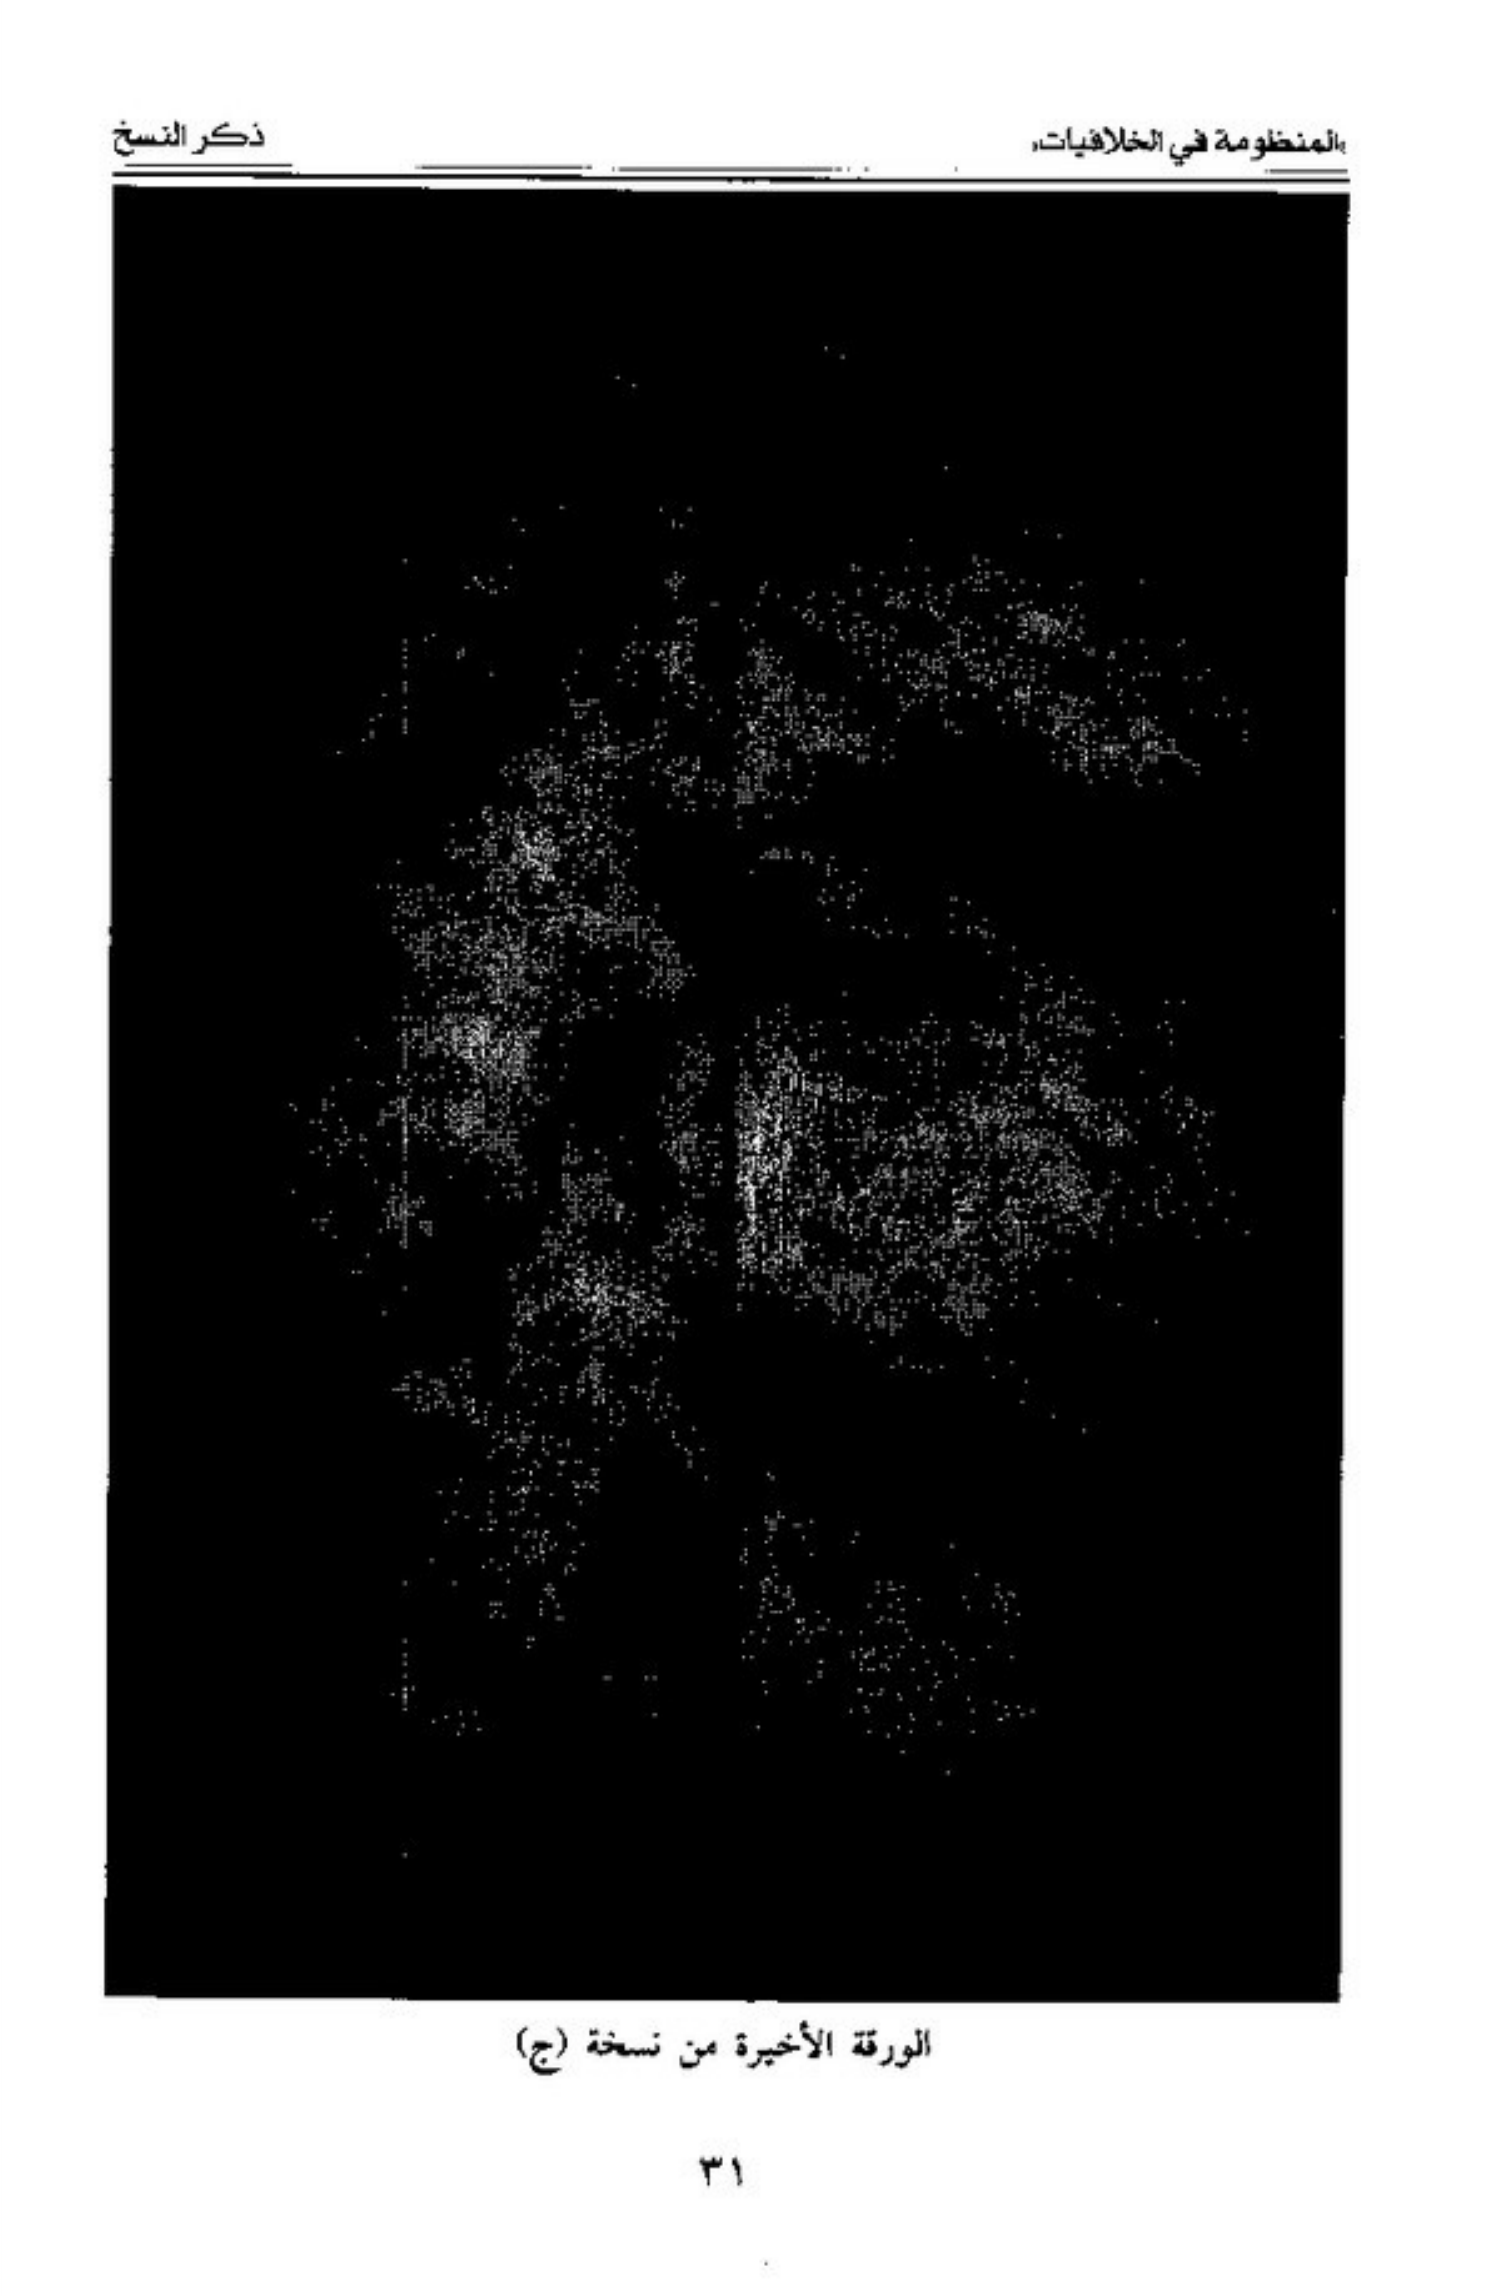 «المنظومة في الخلافيات»
ذكر النسخ
الورقة الأخيرة من نسخة (ج)
٣١